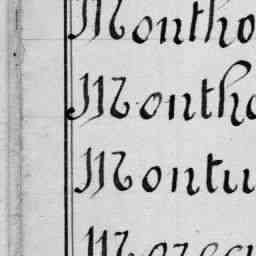 Montho
Montho
Montu
Morea